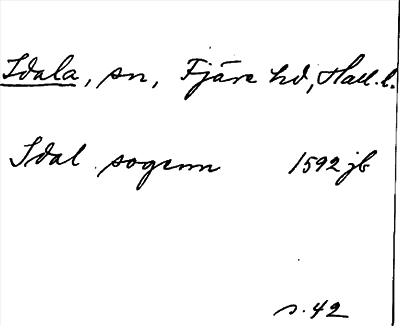 Idala, sn, Fjäre hd, Hall. l.
Idal sogenn 1592 jb
s. 42